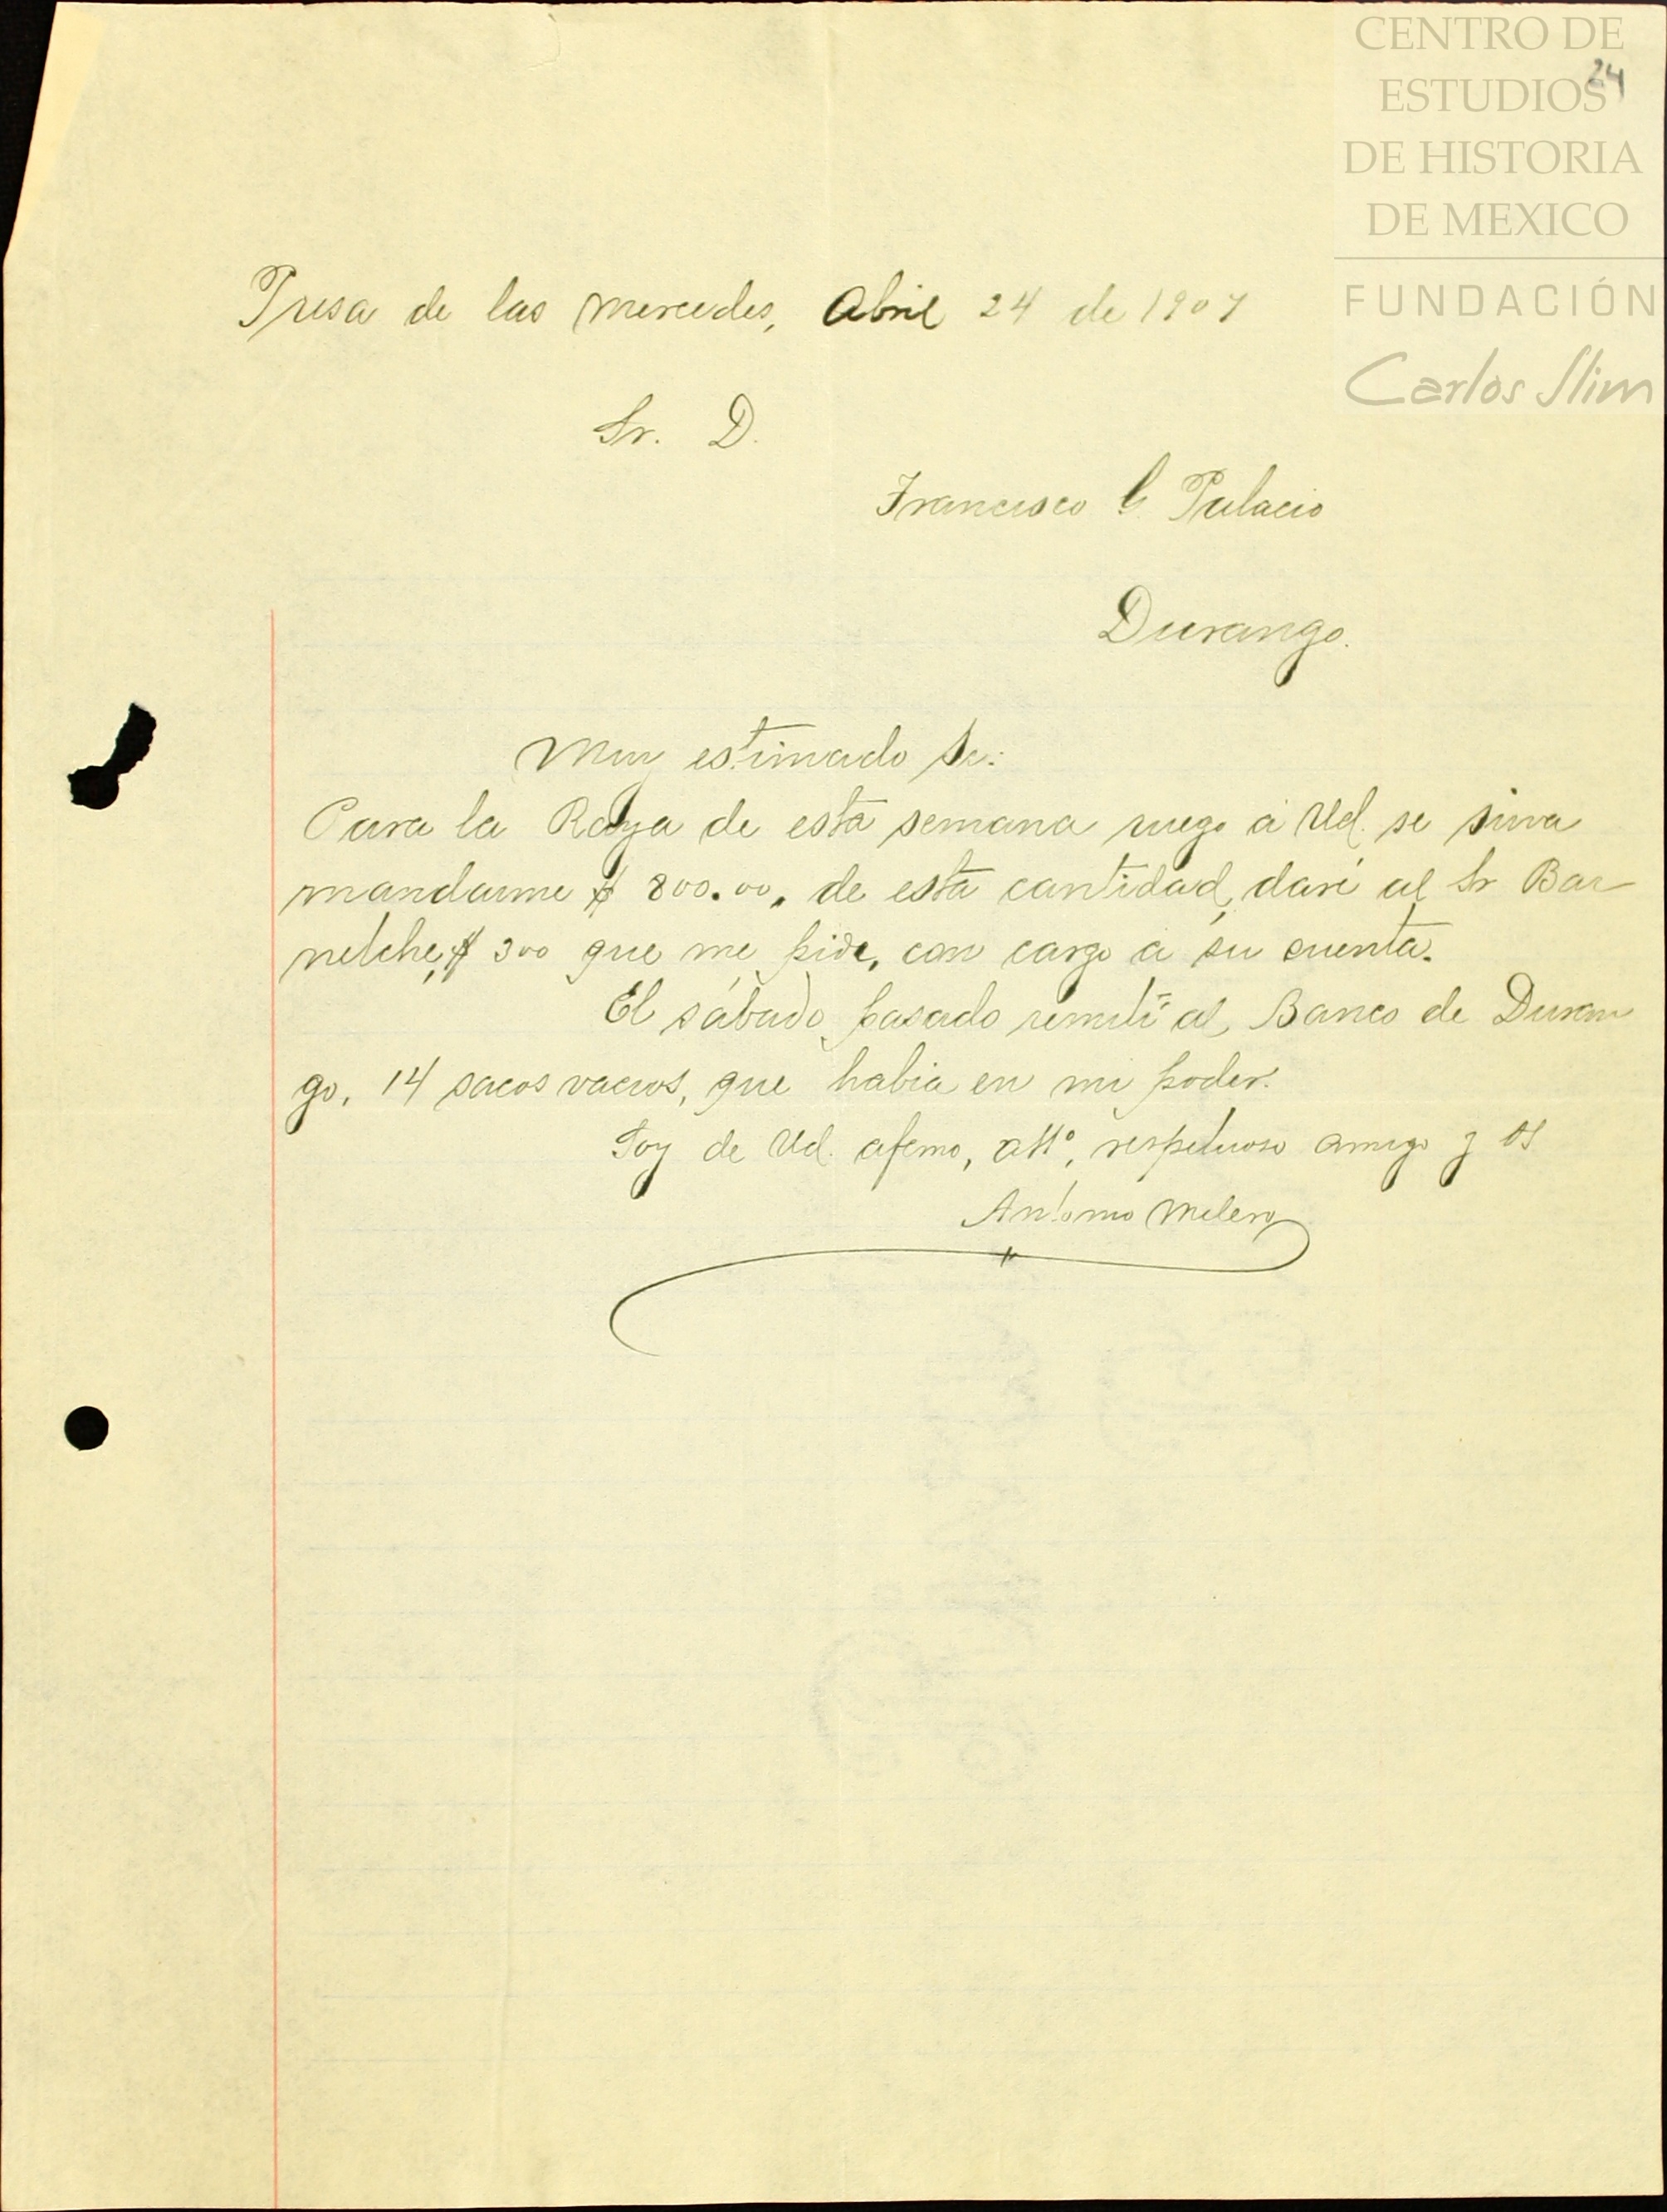 CENTRO DE
ESTUDIOS
24
DE HISTORIA
DE MEXICO
FUNDACIÓN
Carlos Slim
Presa de las Mercedes, Abril 24 de 1907
Sr. D.
Francisco G. Palacio
Durango.
Muy estimado Sr:
Para la Raya de esta semana ruego á Ud. se sirva
mandarme $ 800.00, de esta cantidad, daré al Sr Bar
netche, $ 300 que me pide, con cargo á su cuenta.
El sábado pasado remití al Banco de Duran
go, 14 sacos vacios, que habia en mi poder.
Soy de Ud. afemo, atto, respetuoso amigo y SS
Antonio Melero